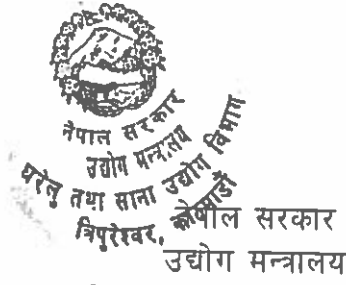 नेपाल सरकार
उद्योग मन्त्रालय
घरेलु तथा साना उद्योग विभाग
त्रिपुरेश्वर, काठमाडौं
नेपाल सरकार
उद्योग मन्त्रालय